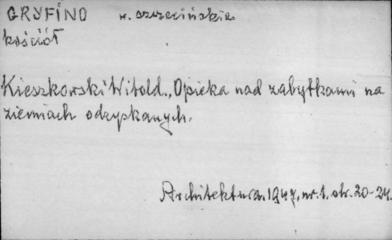 GRYFINO w. szczecińskie
kościół
Kieszkowski Witold., Opieka nad zabytkami na
ziemiach odzyskanych.
Architektura 1947, nr. 1. str. 20-24.